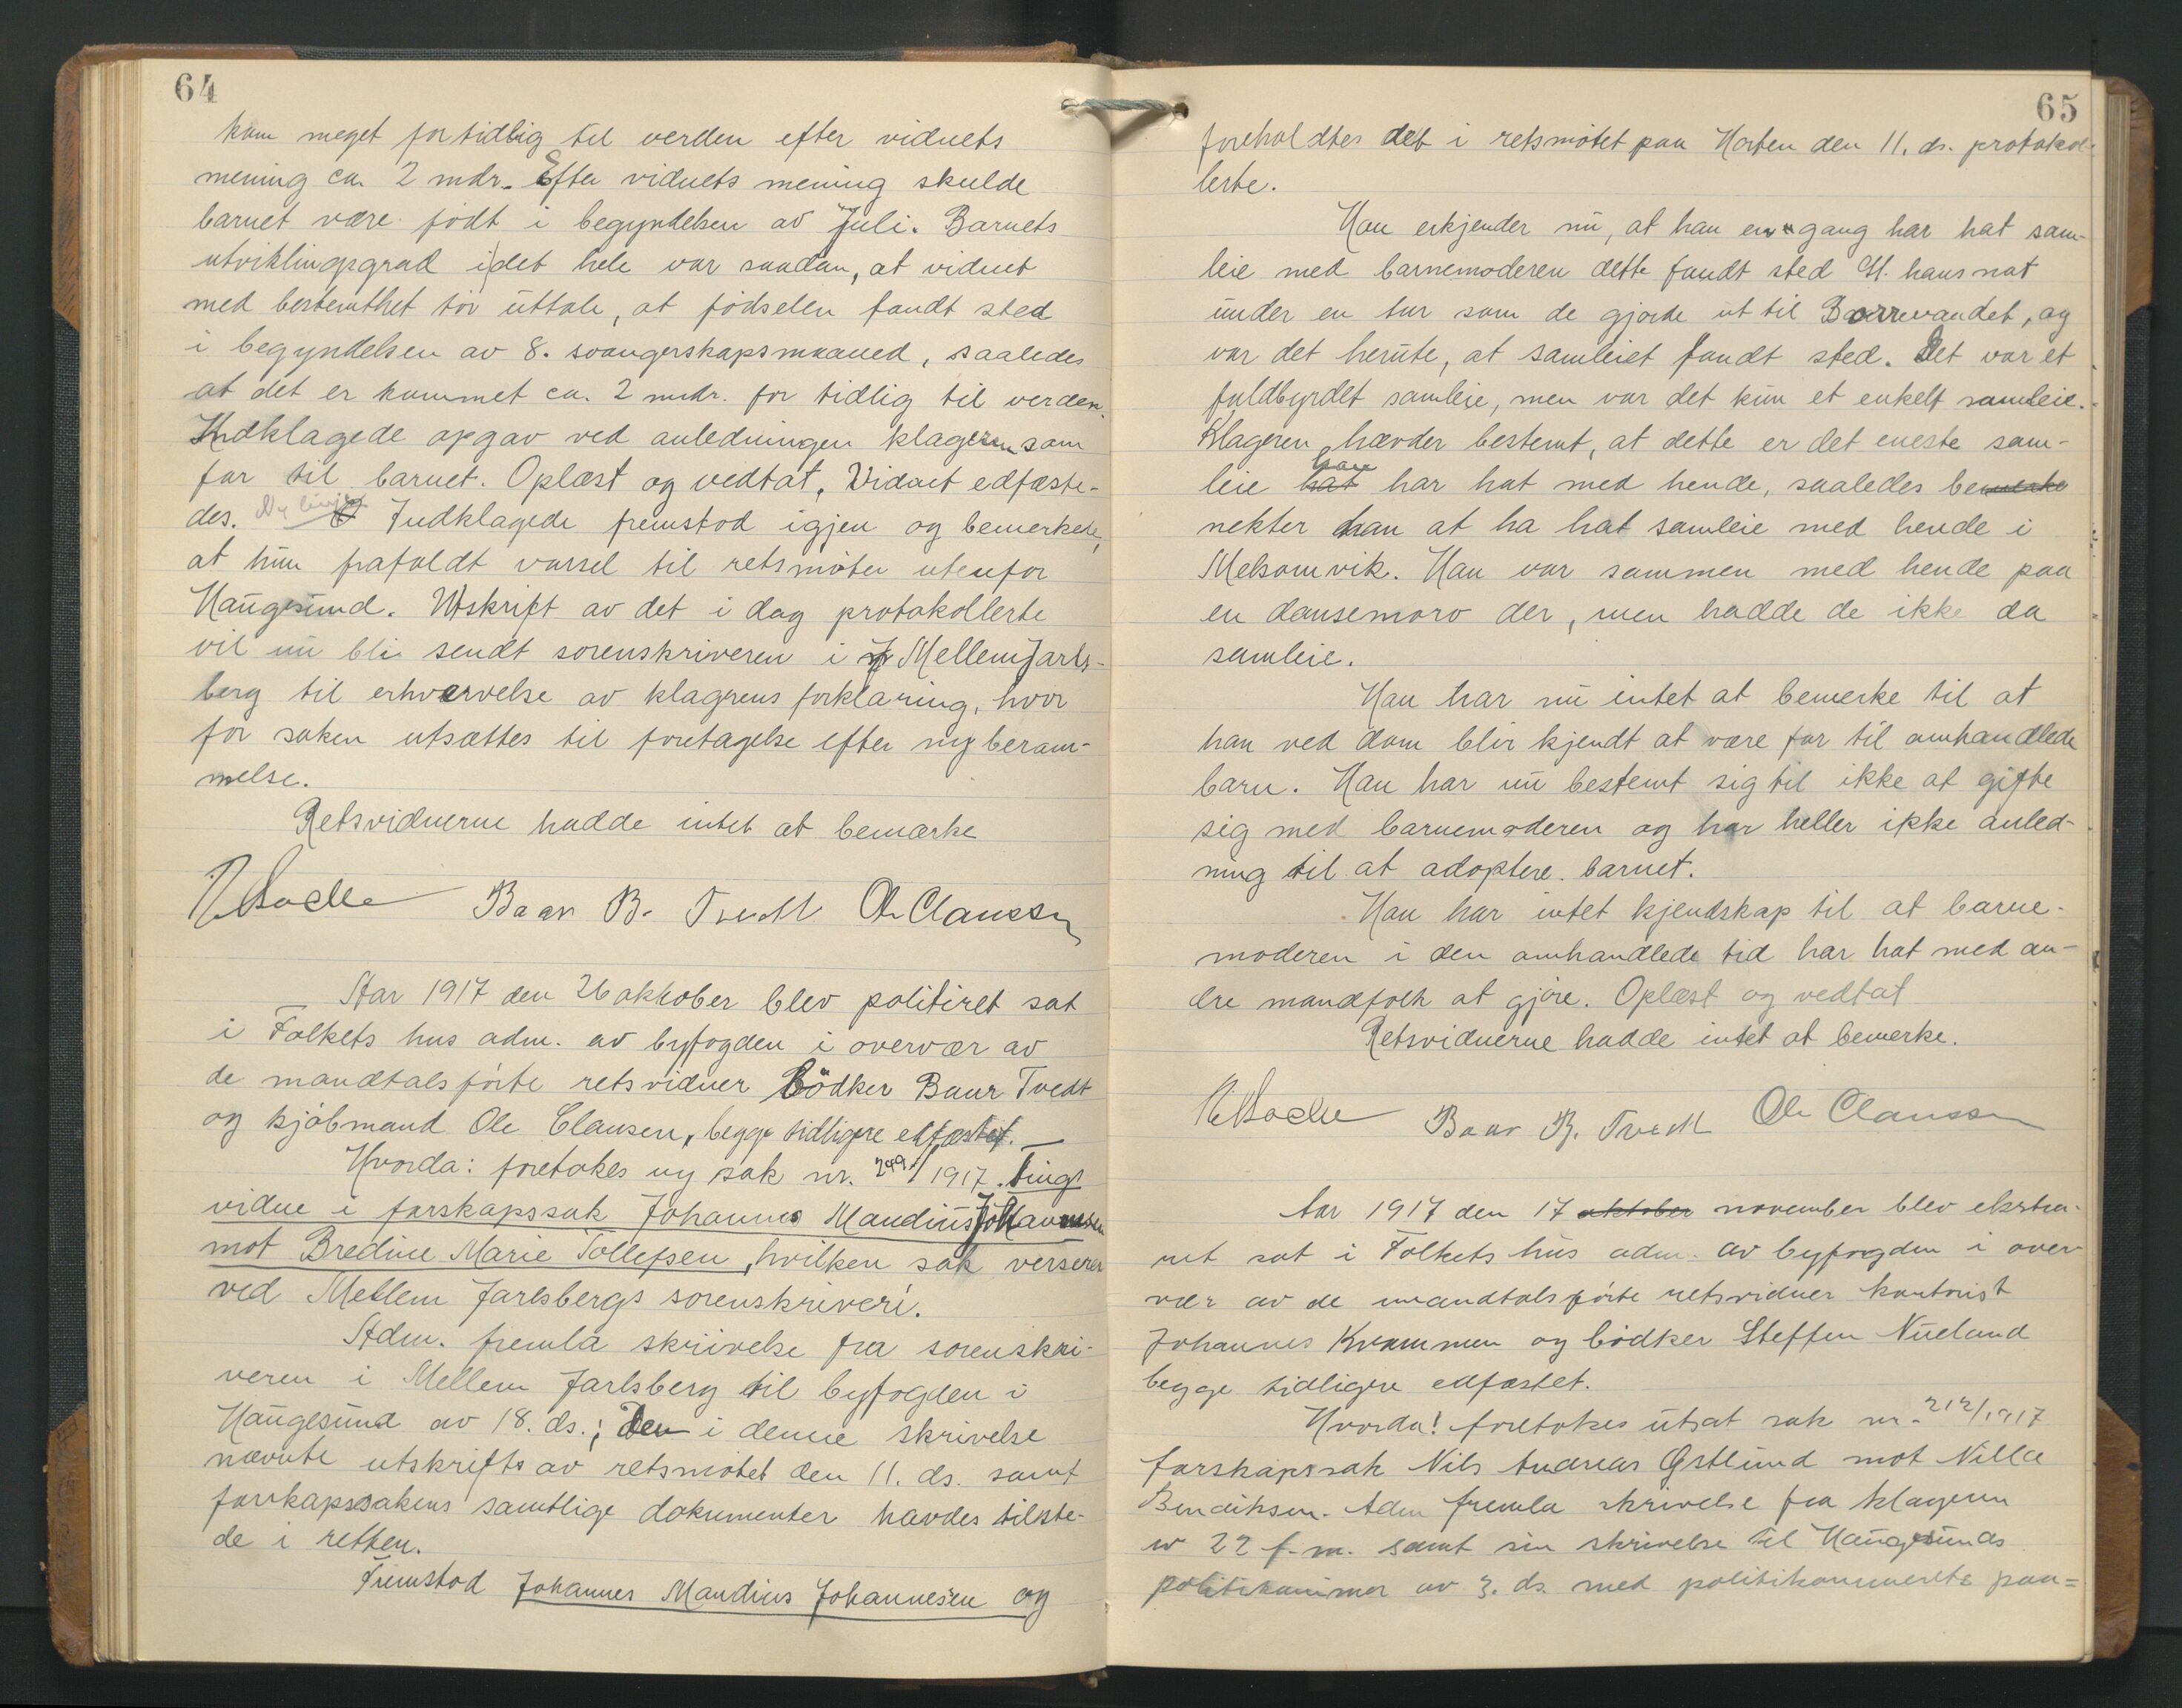 64
kom meget for tidlig til verden efter vidnets
mening ca. 2 mdr. Efter vidnets mening skulde
barnet være født i begyndelsen av Juli. Barnets
utviklingsgrad i det hele var saadan, at vidnet
med bestemthet tør uttale, at fødselen fandt sted
i begyndelsen av 8. svangerskapsmaaned, saaledes
at det er kommet ca. 2 mdr. for tidlig til verden.
Indklagede opgav ved anledningen klageren som
far til barnet. Oplæst og vedtat. Vidnet edfæste-
des. Ny linje Indklagede fremstod igjen og bemerkede,
at hun frafaldt varsel til retsmøter utenfor
Haugesund. Utskrift av det i dag protokollerte
vil nu bli sendt sorenskriveren i Mellem Jarls-
berg til erhvervelse av klagerens forklaring, hvor
for saken utsættes til foretagelse efter ny beram-
melse.
Retsvidnerne hadde intet at bemærke
Baar B. Tvedt Ole Clausen
Aar 1917 den 26 oktober blev politiret sat
i Folkets hus adm. av byfogden i overvær av
de mandtalsførte retsvidner Bødker Baar Tvedt
og kjøbmand Ole Clausen, begge tidligere edfæstet.
Hvorda: foretokes ny sak nr. 299/1917. Tings
vidne i farskapssak Johannes Mandius Johannesen
mot Bredine Marie Tollefsen, hvilken sak verserer
ved Mellem Jarlsbergs sorenskriveri.
Adm. fremla skrivelse fra sorenskri-
veren i Mellem Jarlsberg til byfogden i
Haugesund av 18. ds.; Den i denne skrivelse
nævnte utskrift av retsmøtet den 11. ds. samt
farskapssakens samtlige dokumenter havdes tilste-
de i retten.
Fremstod Johannes Mandius Johannesen og
65
foreholdtes det i retsmøtet paa Horten den 11. ds. protokol-
lerte.
Han erkjender nu, at han en gang har hat sam-
leie med barnemoderen dette fandt sted St. hansnat
under en tur som de gjorde ut til Borrevandet, og
var det herute, at samleiet fandt sted. Det var et
fuldbyrdet samleie, men var det kun et enkelt samleie.
Klageren hævder bestemt, at dette er det eneste sam-
leie hat han har hat med hende, saaledes bemerke
nekter han at ha hat samleie med hende i
Melsomvik. Han var sammen med hende paa
en dansemoro der, men hadde de ikke da
samleie.
Han har nu intet at bemerke til at
han ved dom blir kjendt at være far til omhandlede
barn. Han har nu bestemt sig til ikke at gifte
sig med barnemoderen og har heller ikke anled-
ning til at adoptere barnet.
Han har intet kjendskap til at barne-
moderen i den omhandlede tid har hat med an-
dre mandfolk at gjøre. Oplæst og vedtat
Retsvidnerne hadde intet at bemerke.
Baar B. Tvedt Ole Clausen
Aar 1917 den 17 oktober november blev ekstra-
ret sat i Folkets hus adm. av byfogden i over-
vær av de mandtalsførte retsvidner kontorist
Johannes Kvammen og bødker Steffen Nueland
begge tidligere edfæstet.
Hvorda! foretokes utsat sak nr. 212/1917
farskapssak Nils Andreas Østlund mot Nilla
Bendiksen. Adm fremla skrivelse fra klageren
av 22 f.m. samt sin skrivelse til Haugesunds
politikammer av 3. ds. med politikammerets paa=